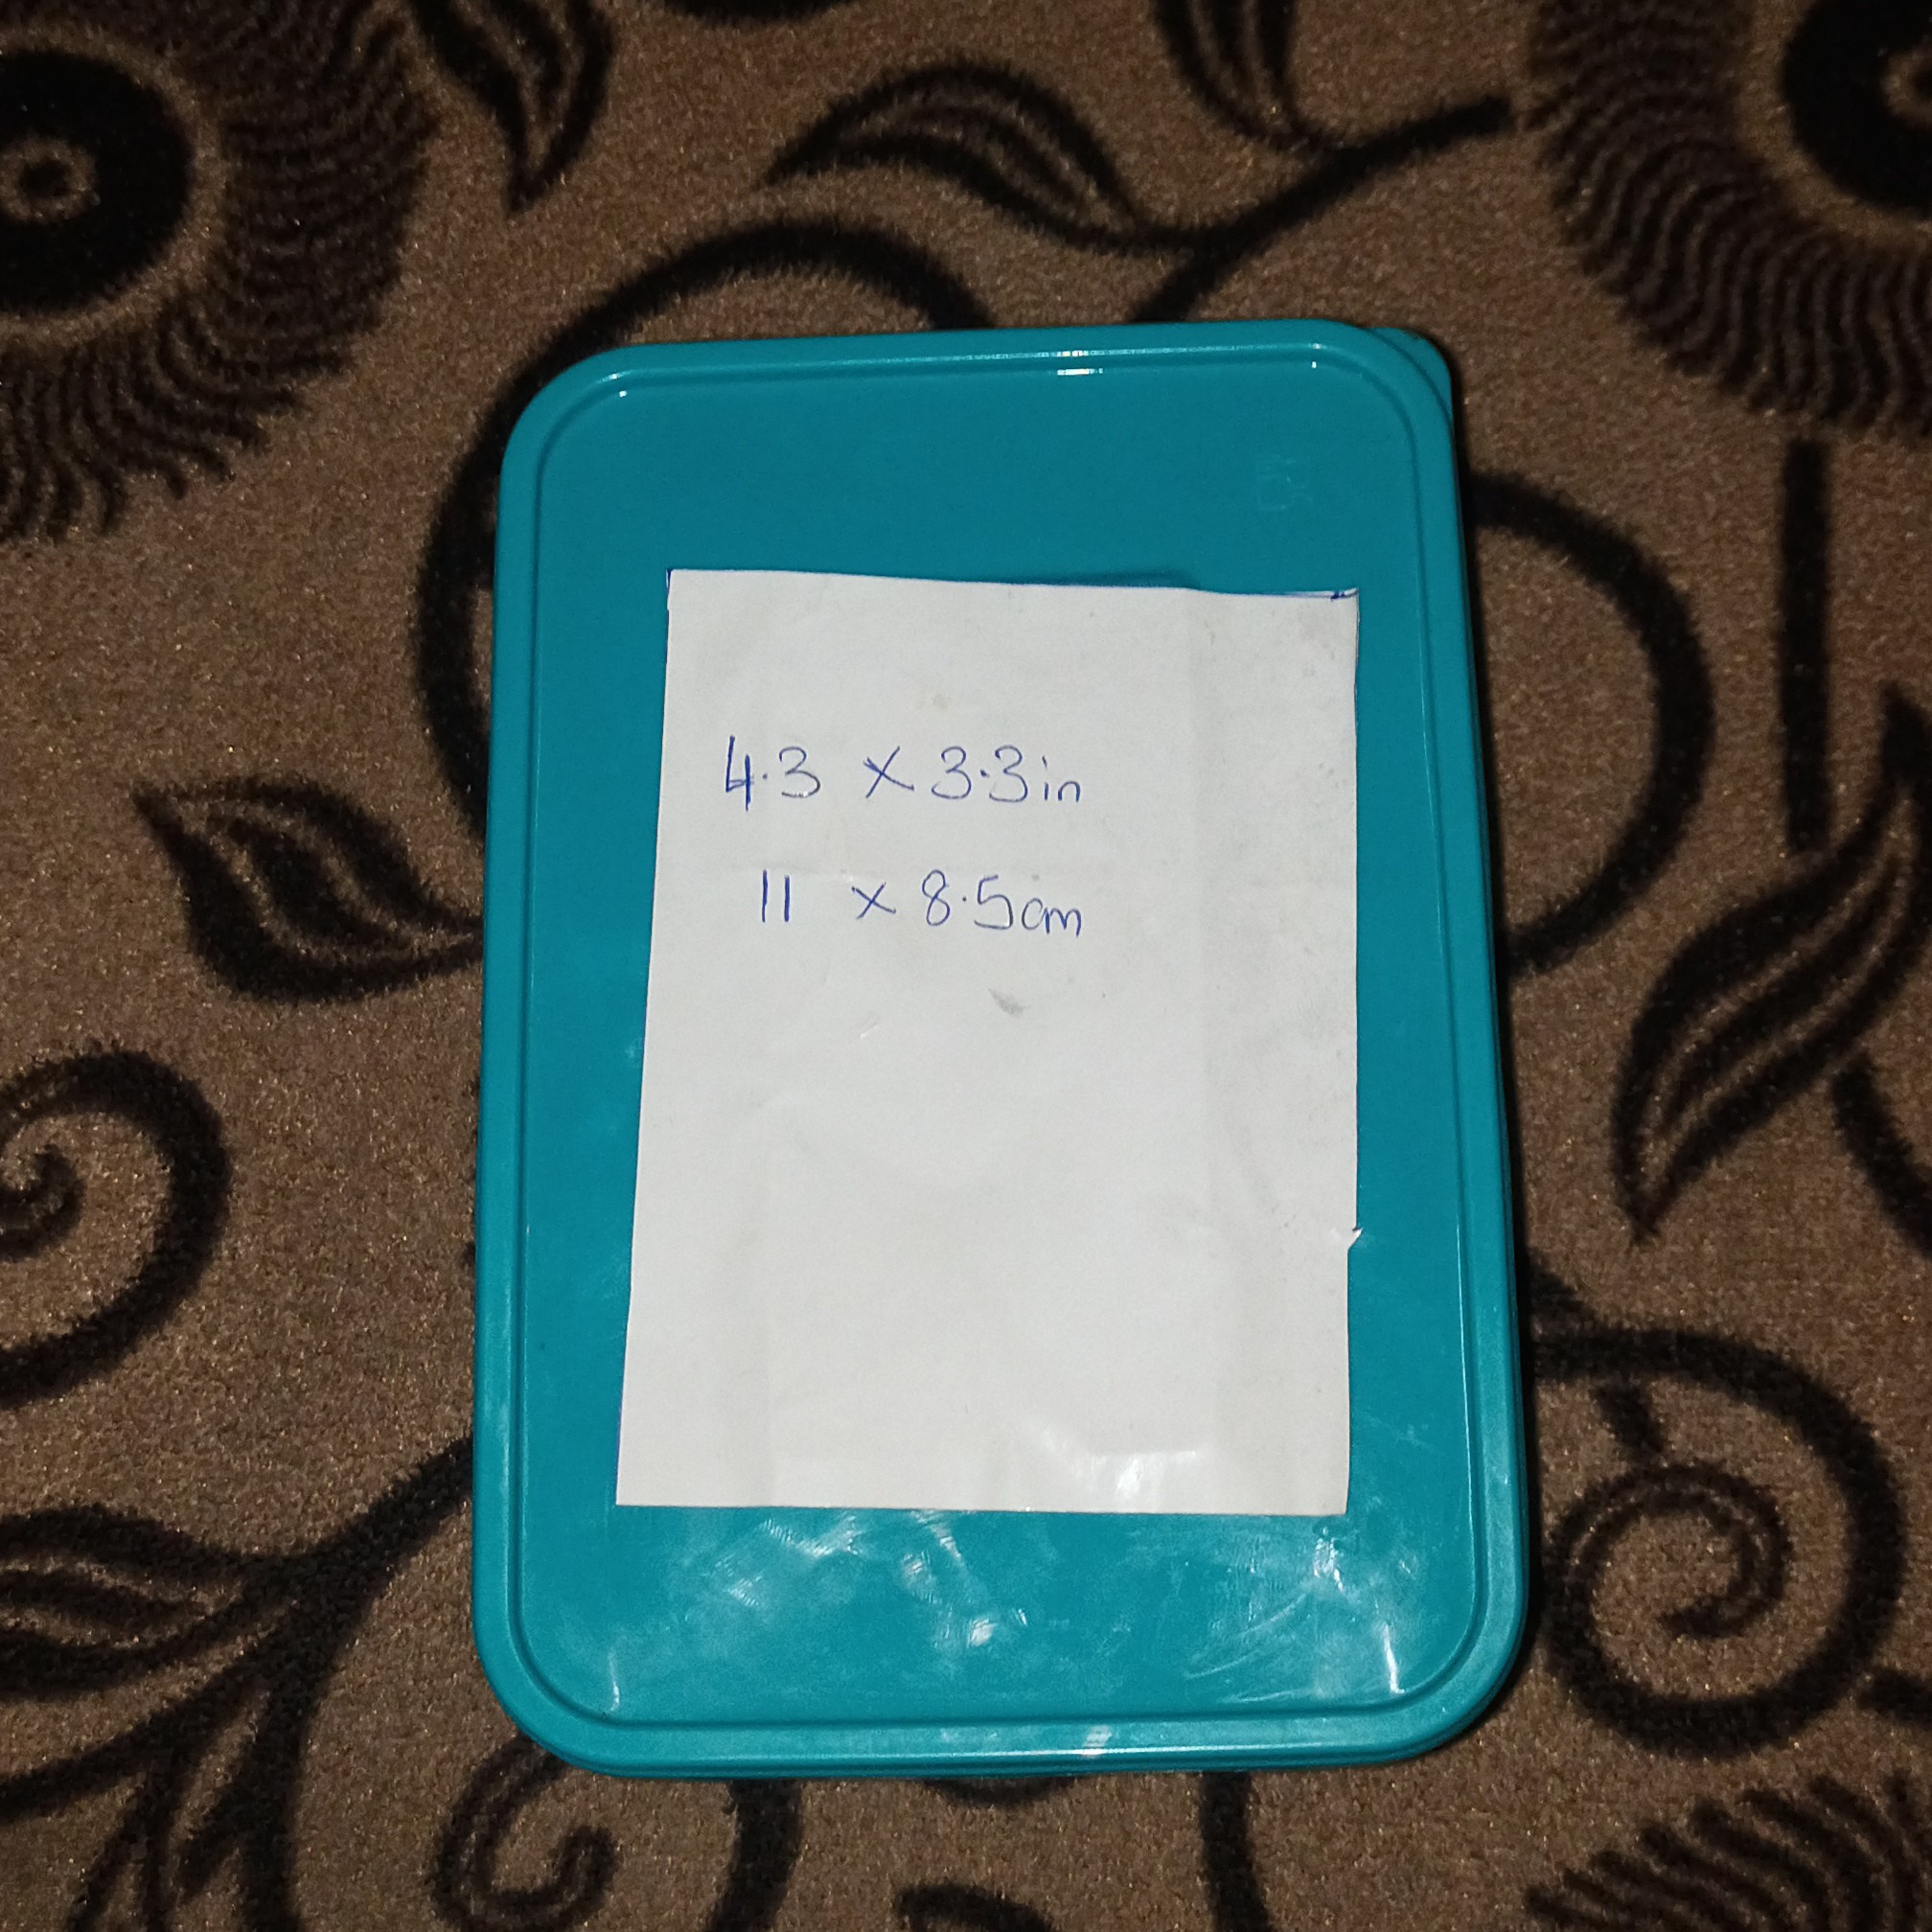 4.3 x 3.3in
11 x 8.5cm